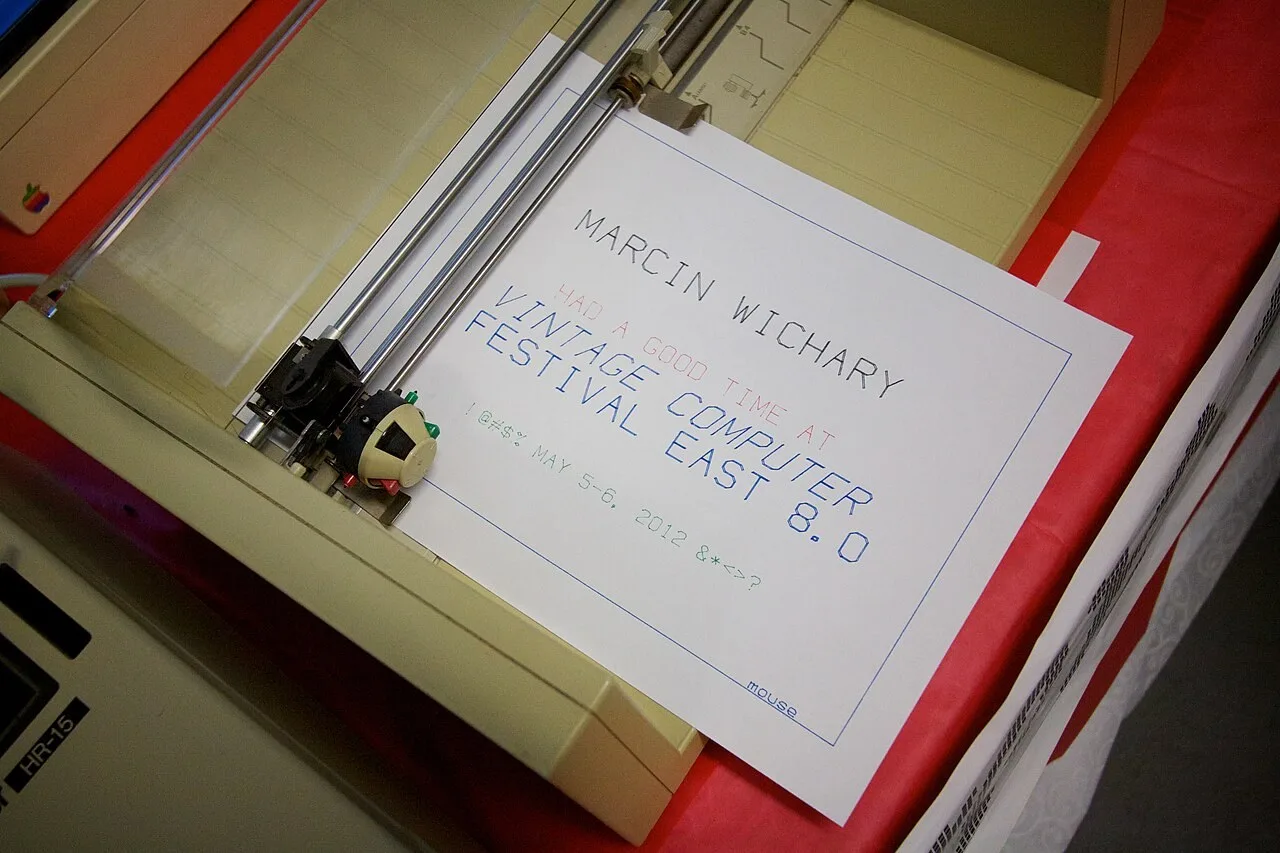 MARCIN WICHARY
HAD A GOOD TIME AT
VINTAGE COMPUTER
FESTIVAL EAST 8.0
!@#$% MAY 5-6, 2012 &*<>?
mouse
HR-15